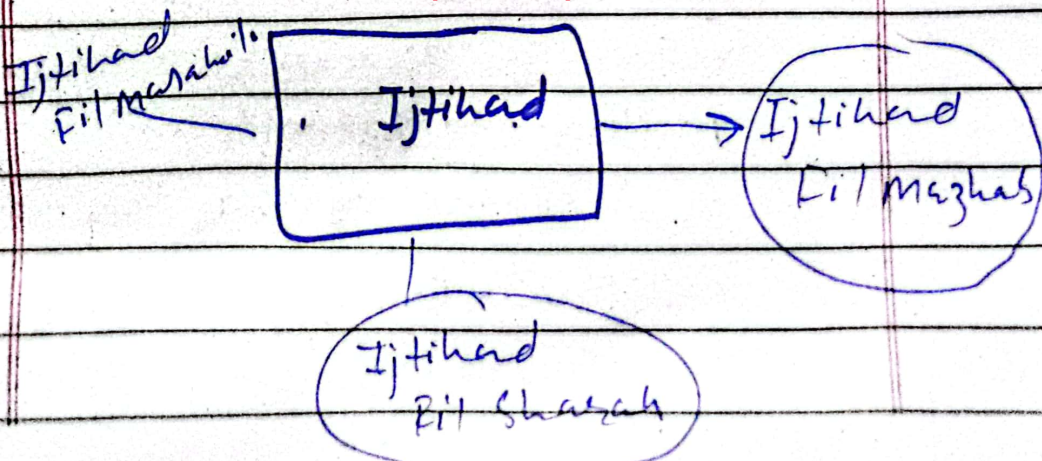 Ijtihad
Fil Masahil.
Ijtihad
Ijtihad
Fil Mazhab
Ijtihad
Fil Sharah